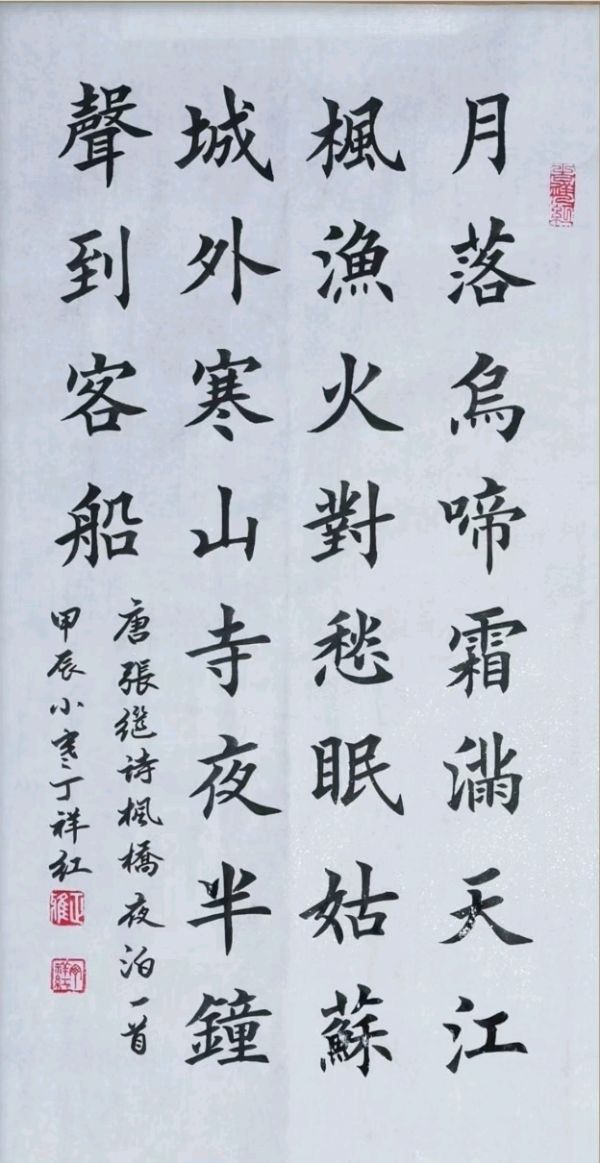 月落烏啼霜滿天江
楓漁火對愁眠姑蘇
城外寒山寺夜半鐘
聲到客船
唐張繼詩楓橋夜泊一首
甲辰小寒丁祥紅